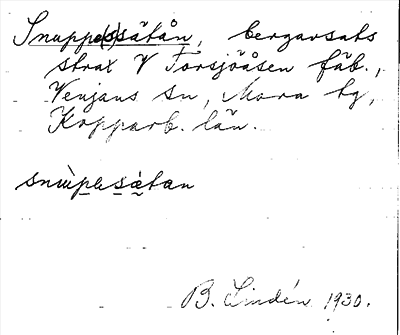 Snuppe(s)sätån, bergavsats
strax V Forsjöåsen fäb.,
Venjans sn, Mora tg,
Kopparb. län.
snùpesätan
B. Lindén 1930.